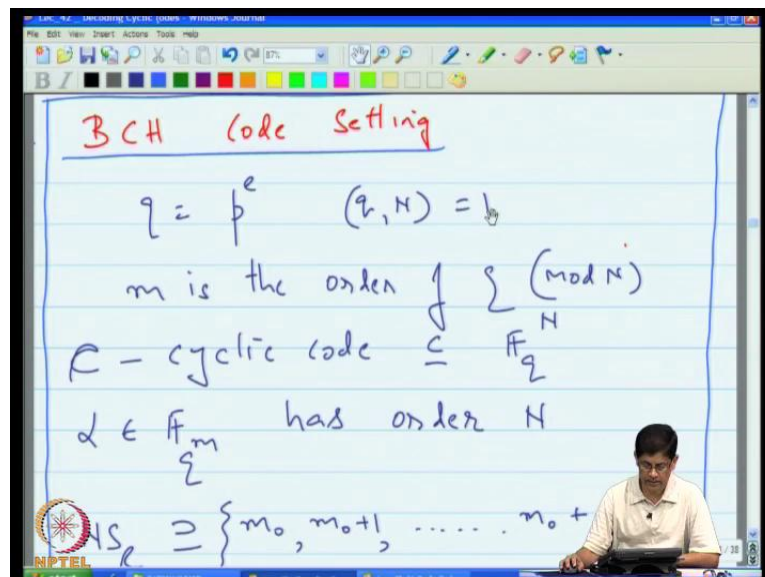 Lec_42_ Decoding Cyclic Codes - Windows Journal
File Edit View Insert Actions Tools Help
87%
B I
BCH Code Setting
q = p^e (q, N) = 1
m is the order of q (mod N)
C - cyclic code ⊆ F_q^N
α ∈ F_{q^m} has order N
NS_C ⊇ { m_0, m_0+1, ...... m_0 +
/ 38
NPTEL